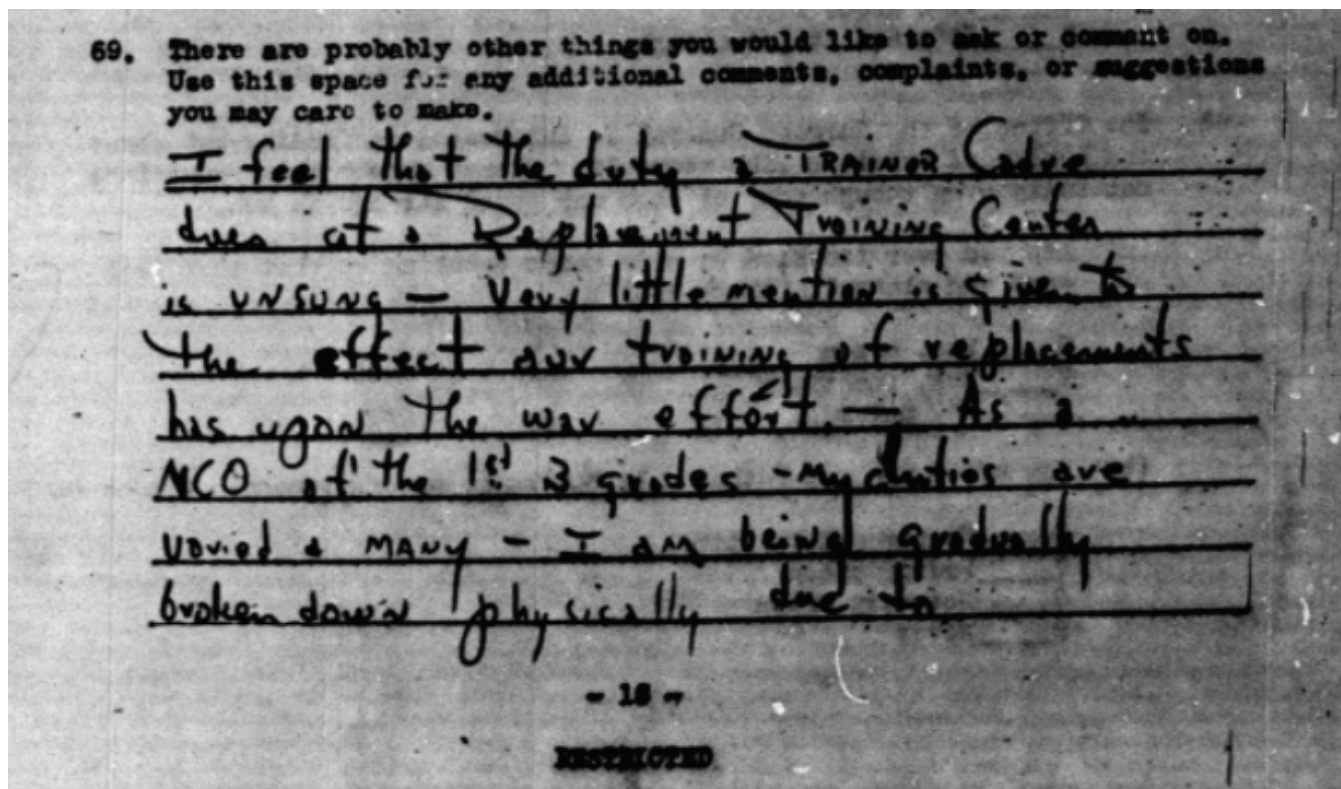 69. There are probably other things you would like to ask or comment on.
Use this space for any additional comments, complaints, or suggestions
you may care to make.
I feel that the duty a TRAINER Cadre
does at a Replacement Training Center
is UNSUNG — Very little mention is given to
the effect our training of replacements
has upon the war effort. — As a
NCO of the 1st 3 grades - My duties are
varied & MANY - I AM being gradually
broken down physically due to
- 16 -
RESTRICTED